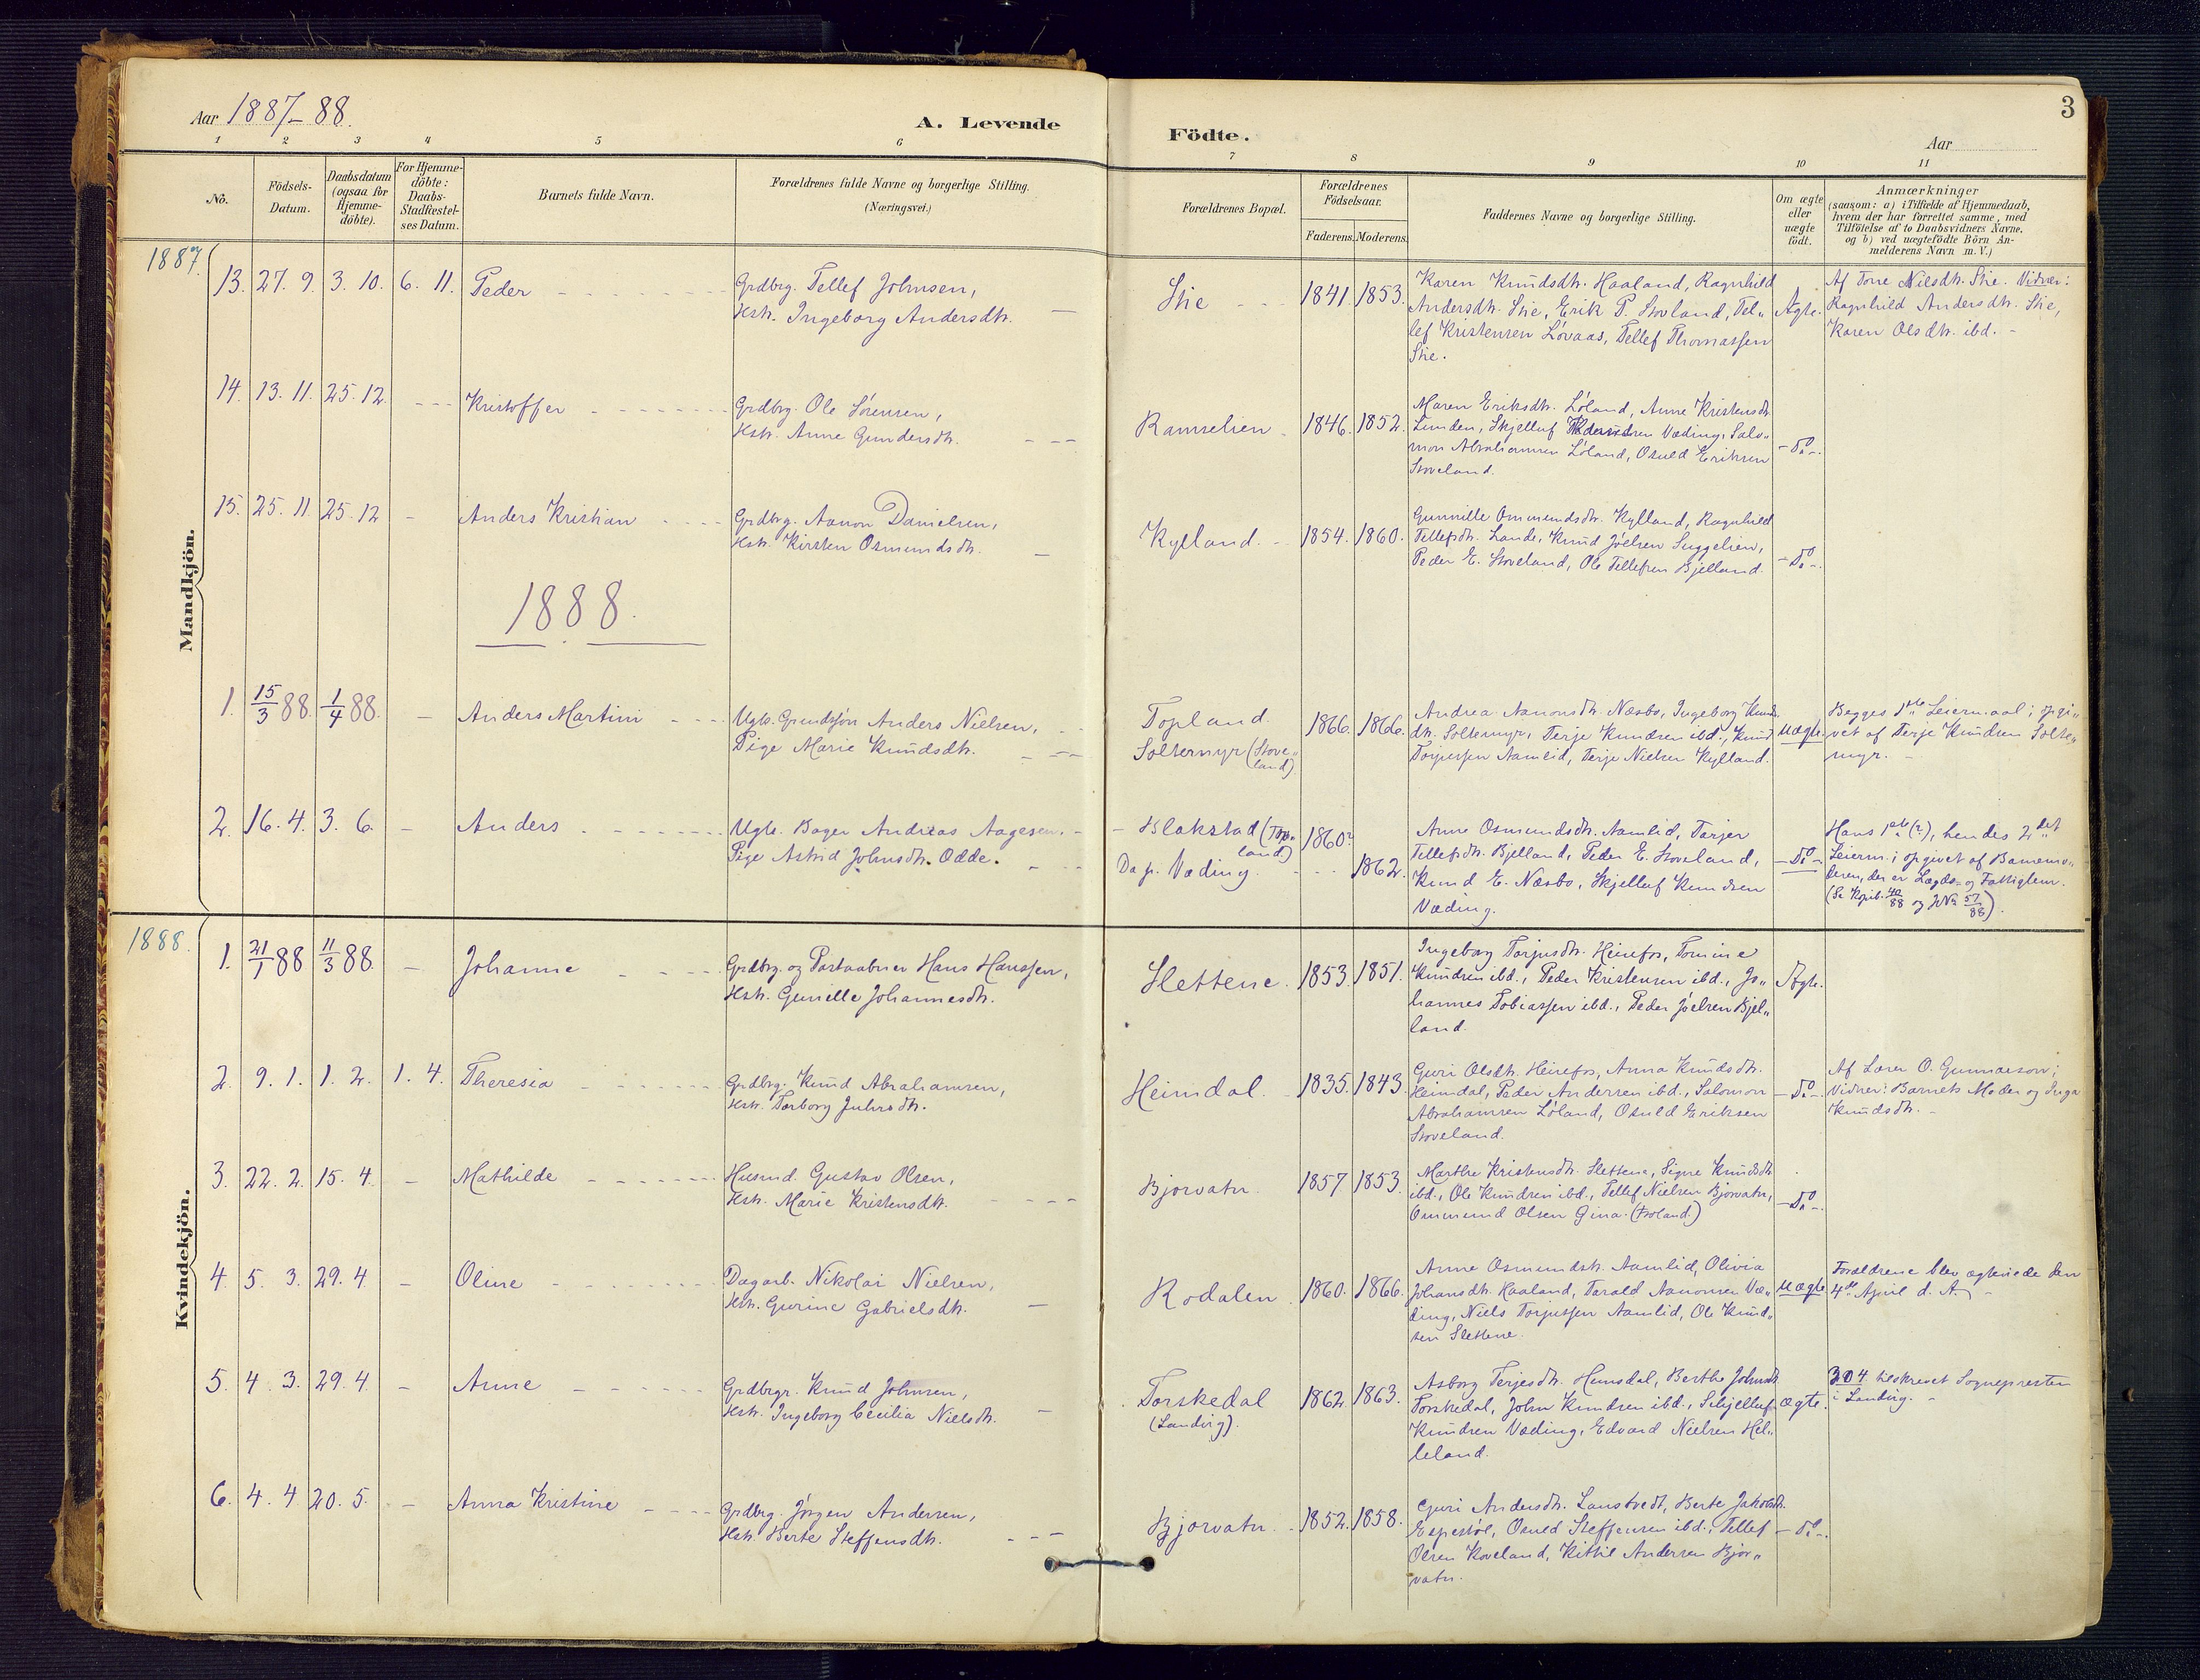 Aar 1887-88.
A. Levende
Födte.
Aar
3
1 2 3 4 5 6 7 8 9 10 11
No.
Födsels-Datum.
Daabsdatum (ogsaa for Hjemme-döbte).
For Hjemme-döbte: Daabs-Stadfæstel-ses Datum.
Barnets fulde Navn.
Forældrenes fulde Navne og borgerlige Stilling.
(Næringsvei.)
Forældrenes Bopæl.
Forældrenes Födselsaar.
Faderens. Moderens.
Faddernes Navne og borgerlige Stilling.
Om ægte eller uægte födt.
Anmærkninger
(saasom: a) i Tilfælde af Hjemmedaab,
hvem der har forrettet samme, med
Tilföielse af to Daabsvidners Navne.
og b) ved uægtefödte Börn An-
melderens Navn m. V.)
Mandkjön.
1887
13. 27. 9. 3. 10. 6. 11. Peder
Grdbrg. Tellef Johnsen,
Hstr. Ingeborg Andersdtr.
Stie 1841. 1853.
Karen Knudsdtr. Haaland, Ragnhild
Andersdtr. Stie, Erik P. Stoveland, Tel„
lef Kristensen Lövaas, Tellef Thomassen
Stie.
Ægte.
Af Tone Nilsdtr. Stie. Vidner:
Ragnhild Andersdtr. Stie,
Karen Olsdtr. ibd. -
14. 13. 11. 25. 12. Kristoffer
Grdbrg. Ole Sörensen,
Hstr. Anne Gundersdtr.
Ramselien 1846. 1852.
Maren Eriksdtr. Löland, Anne Kristensdtr.
Linden, Skjelluf Knudsen Væding, Salo„
mon Abrahamsen Löland, Osuld Eriksen
Stoveland.
- Do -.
15. 25. 11. 25. 12 - Anders Kristian
Grdbrg. Aanon Danielsen,
Hstr. Kirsten Osmundsdtr.
Kylland. 1854. 1860.
Gunnille Ommundsdtr. Kylland, Ragnhild
Tellefsdtr. Lande, Knud Jöelsen Suggelien,
Peder E. Stoveland, Ole Tellefsen Bjelland.
- Do -.
1888.
1. 15/3 88. 1/4 88. - Anders Martin
Ugb. Grundsjön Anders Nielsen,
Pige Marie Knudsdtr.
Topland
Soltemyr (Stove„
land)
1866. 1866.
Andrea Aanonsdtr. Næsbø, Ingeborg Knuds
dtr. Soltemyr, Terje Knudsen ibd., Knud
Torjussen Aamlid, Terje Nielsen Kylland.
Uægte.
Begges 1ste Leiermaal; opgi„
vet af Terje Knudsen Solte„
myr. -
2. 16. 4. 3. 6. - Anders
Ugb. Bager Andreas Aagesen,
Pige Astrid Johnsdtr. Odde.
- Blakstad (Top„
land)
Da p. Væding.
1860? 1862.
Anne Osmundsdtr. Aamlid, Tarjer
Tellefsdtr. Bjelland, Peder E. Stoveland,
Knud E. Næsbø, Skjelluf Knudsen
Væding.
- Do -
Hans 1ste (?), hendes 2det
Leierm.; opgivet af Barnemo„
deren, der er Lægds- og Fattiglem.
(Se Kopib. 40/88 og J№ 57/88).
Kvindekjön.
1888.
1. 21/1 88 11/3 88. - Johanne
Grdbrg. og Postaabner Hans Hanssen,
Hstr. Gunille Johannesdtr.
Slettene. 1853. 1851.
Ingeborg Torjusdtr. Heirefos, Tomine
Knudsen ibd., Peder Kristensen ibd., Jo„
hannes Tobiassen ibd., Peder Jöelsen Bjel„
land.
Ægte.
2. 9. 1. 1. 2. 1. 4. Theresia
Grdbrg. Knud Abrahamsen,
Hstr. Torborg Juhrsdtr.
Heimdal. 1835. 1843.
Guri Olsdtr. Heirefos, Anna Knudsdtr.
Heimdal, Peder Andersen ibd., Salomon
Abrahamsen Löland, Osuld Eriksen
Stoveland.
- Do -.
Af Lærer O. Gunnarson;
Vidner: Barnets Moder og Inga
Knudsdtr. -
3. 22. 2. 15. 4. - Mathilde
Husmd. Gustav Olsen,
Hstr. Marie Kristensdtr.
Bjorvatn. 1857 1853.
Marthe Kristensdtr. Slettene, Signe Knudsdtr.
ibd., Ole Knudsen ibd., Tellef Nielsen Bjorvatn,
Ommund Olsen Gina. (Froland.)
- Do -.
4. 5. 3. 29. 4. - Oline
Dagarb. Nikolai Nielsen,
Hstr. Gurine Gabrielsdtr.
Rodalen 1860. 1866.
Anne Osmundsdtr. Aamlid, Olivia
Johansdtr. Haaland, Tarald Aanonsen Væ„
ding, Niels Torjussen Aamlid, Ole Knud„
sen Slettene.
Uægte
Forældrene blev ægteviede den
4de April d. A. -
5. 4. 3. 29. 4. - Anne
Grdbrgr. Knud Johnsen,
Hstr. Ingeborg Cecilia Nielsdtr.
Torskedal
(Landvig).
1862. 1863.
Asborg Terjesdtr. Hunsdal, Berthe Johnsdtr.
Torskedal, John Knudsen ibd., Schjelluf
Knudsen Væding, Edvard Nielsen Hel„
leland.
Ægte.
30/4 tilskrevet Sognepresten
i Landvig. -
6. 4. 4. 20. 5. - Anna Kristine
Grdbrg. Jörgen Andersen,
Hstr. Berte Steffensdtr.
Bjorvatn 1852. 1858.
Guri Andersdtr. Lanstvedt, Berte Jakobsdtr.
Espestöl, Osuld Steffensen ibd., Tellef
Olsen Koveland, Kittil Andersen Bjor„
vatn.
- Do -.